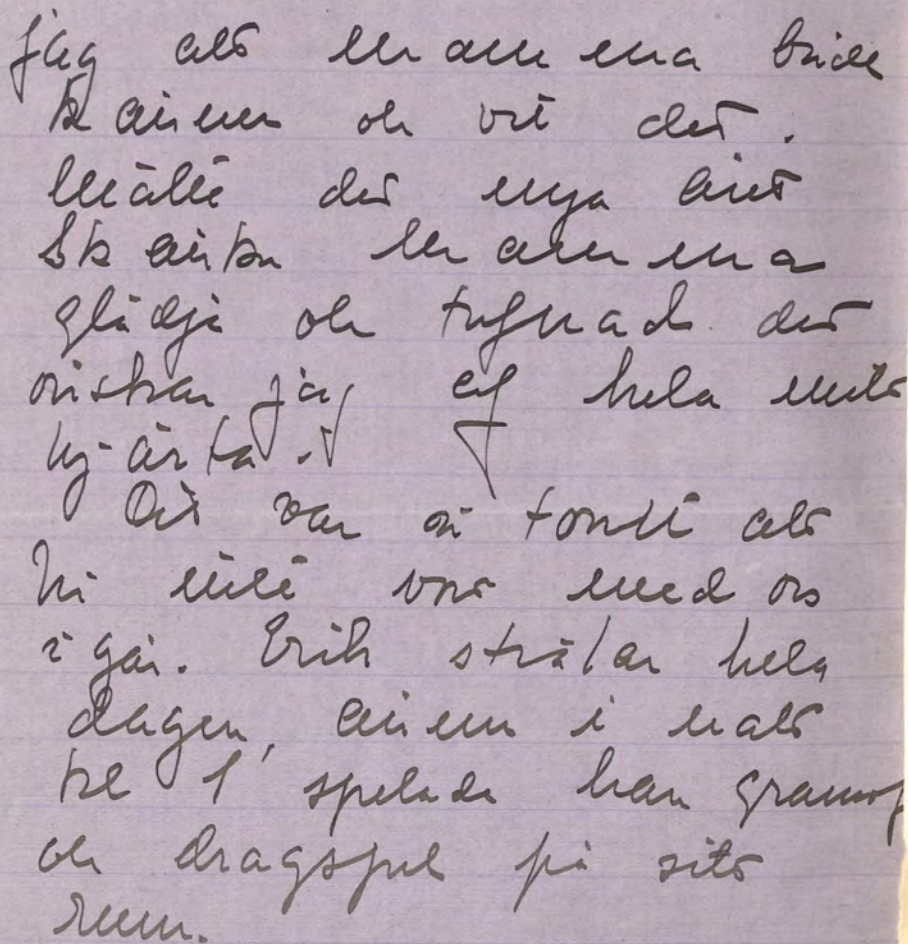 jag att mamma både
känner och vet det.
Måtte det nya året
skänka mamma
glädje och trefnad det
önskar jag af hela mitt
hjärta.
Det var så tomt att
Ni inte var med oss
i går. Erik strålar hela
dagen, även i natt
kl 1 spelade han gramof
och dragspel på sitt
rum.